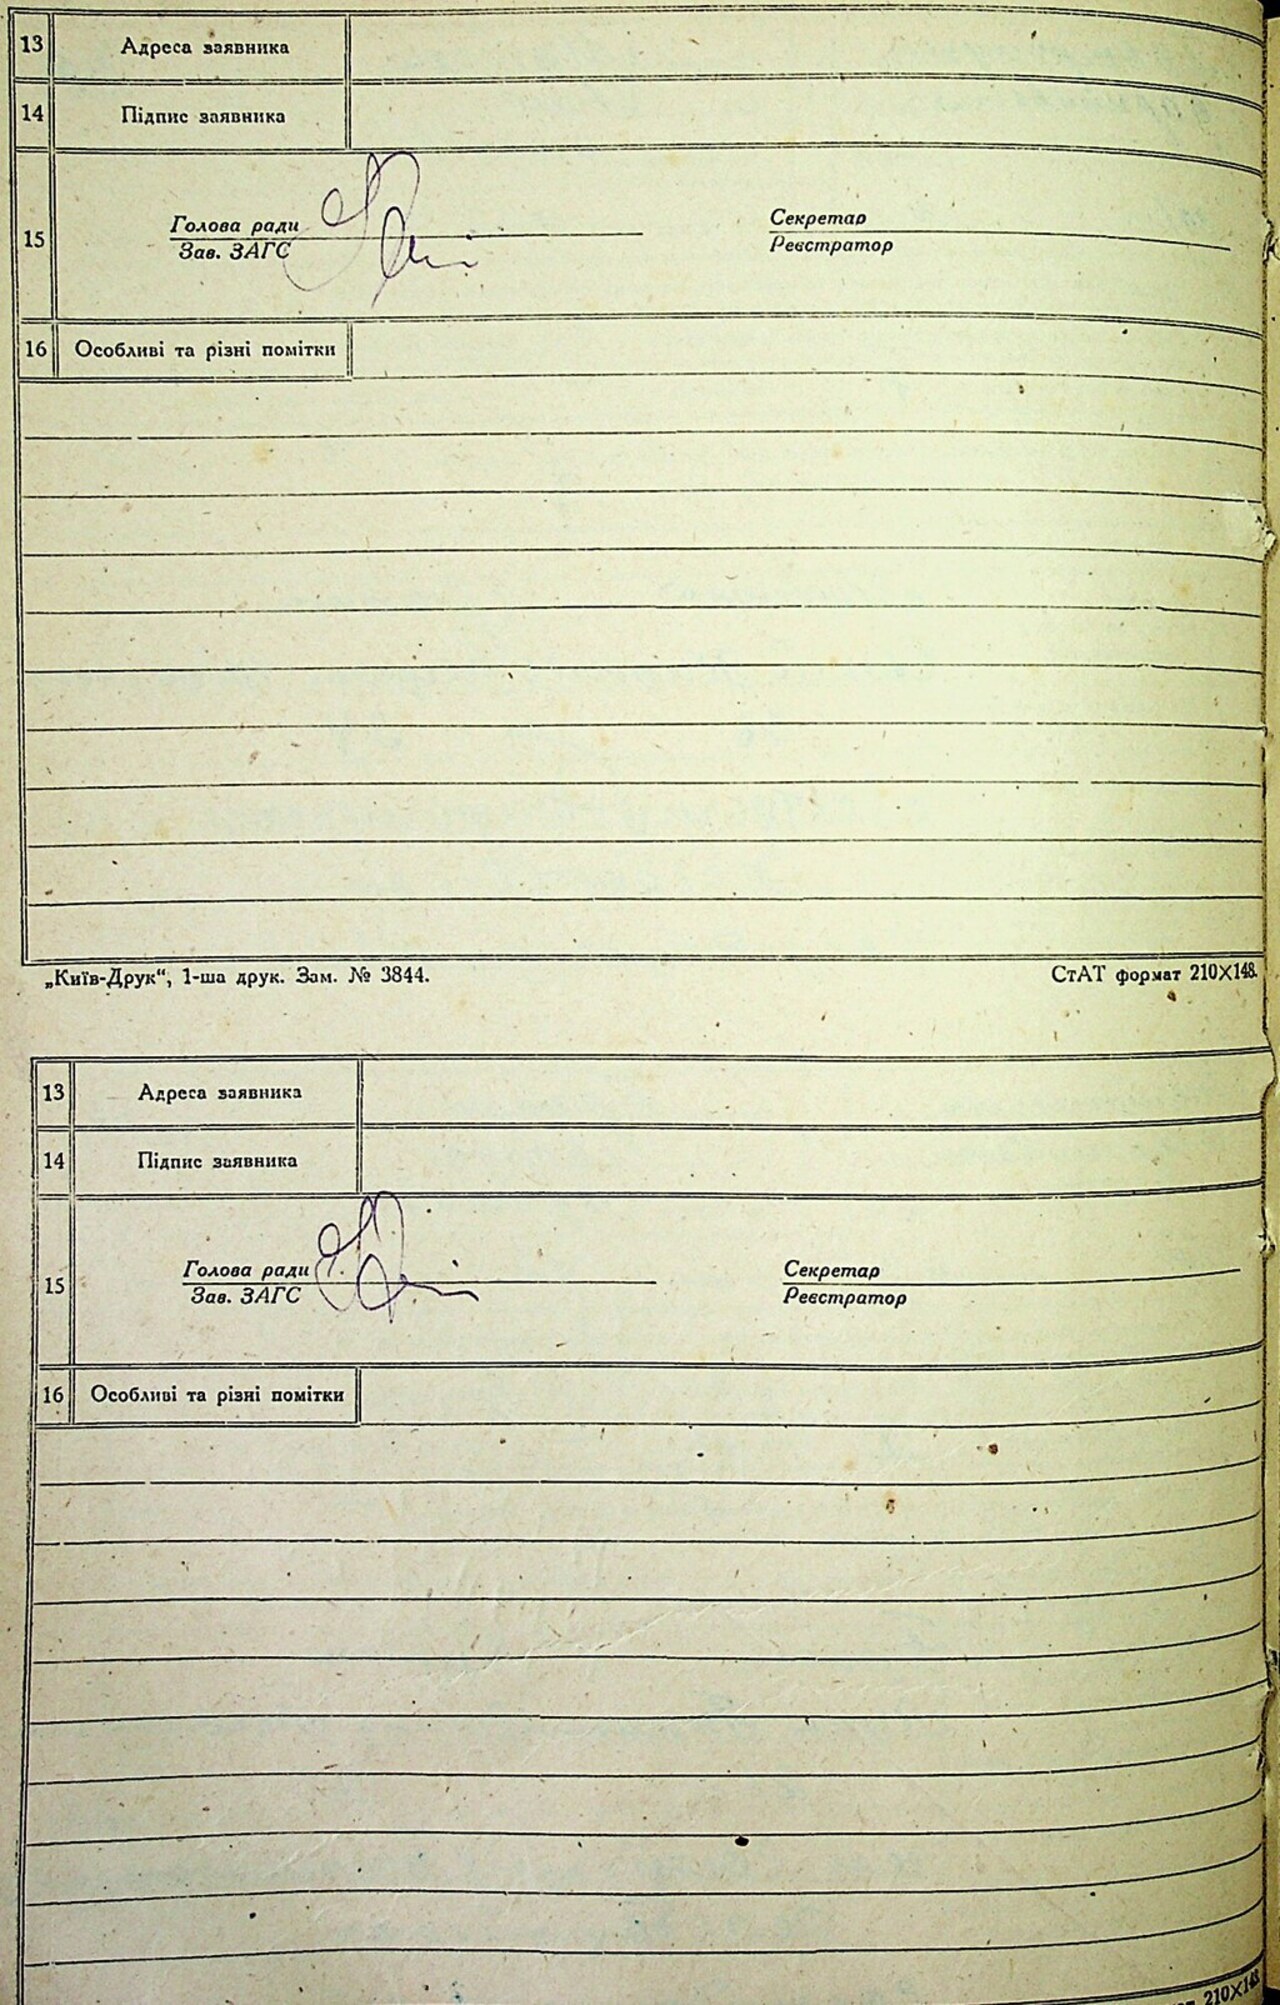 13 Адреса заявника
14 Підпис заявника
15 Голова ради Секретар
Зав. ЗАГС Реєстратор
16 Особливі та різні помітки
„Київ-Друк“, 1-ша друк. Зам. № 3844. СтАТ формат 210×148.
13 Адреса заявника
14 Підпис заявника
15 Голова ради Секретар
Зав. ЗАГС Реєстратор
16 Особливі та різні помітки
210×148